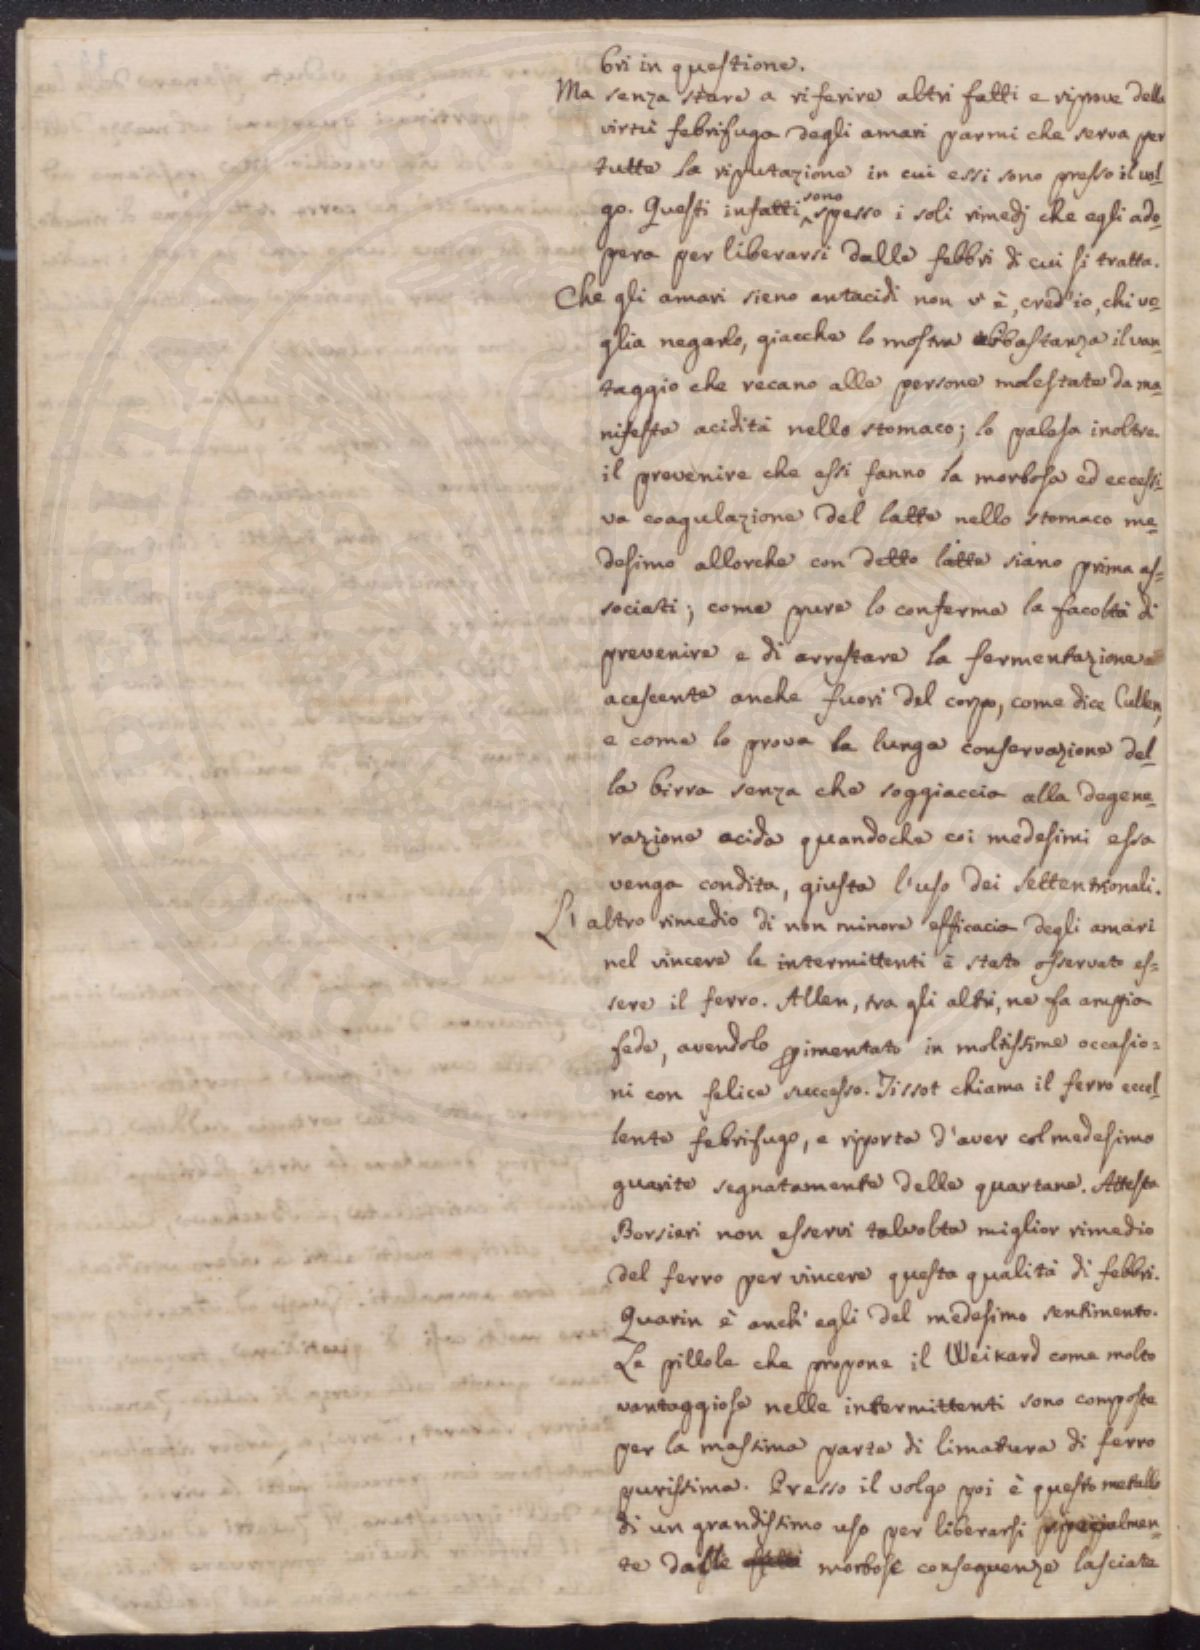 bri in questione.
Ma senza stare a riferire altri fatti e riprove della
virtù febrifuga degli amari parmi che serva per
tutte la riputazione in cui essi sono presso il vol-
go. Questi infatti sono spesso i soli rimedj che egli ado-
pera per liberarsi dalle febbri di cui si tratta.
Che gli amari sieno antacidi non v'è, cred'io, chi vo-
glia negarlo, giacche lo mostra abbastanza il van-
taggio che recano alle persone molestate da ma-
nifesta acidità nello stomaco; lo palesa inoltre
il prevenire che essi fanno la morbosa ed eccessi-
va coagulazione del latte nello stomaco me-
desimo allorche con detto latte siano prima as-
sociati; come pure lo conferma la facoltà di
prevenire e di arrestare la fermentazione
acescente anche fuori del corpo, come dice Cullen,
e come lo prova la lunga conservazione del-
la birra senza che soggiaccia alla degene-
razione acida quandoche coi medesimi essa
venga condita, giusta l'uso dei Settentrionali.
L'altro rimedio di non minore efficacia degli amari
nel vincere le intermittenti è stato osservato es-
sere il ferro. Allen, tra gli altri, ne fa ampia
fede, avendolo sperimentato in moltissime occasio-
ni con felice successo. Tissot chiama il ferro eccel-
lente febrifugo, e riporta d'aver col medesimo
guarite segnatamente delle quartane. Attesta
Borsieri non esservi talvolta miglior rimedio
del ferro per vincere questa qualità di febbri.
Quarin è anch'egli del medesimo sentimento.
Le pillole che propone il Weikard come molto
vantaggiose nelle intermittenti sono composte
per la massima parte di limatura di ferro
purissima. Presso il volgo poi è questo metallo
di un grandissimo uso per liberarsi specialmen-
te dalle morbose conseguenze lasciate